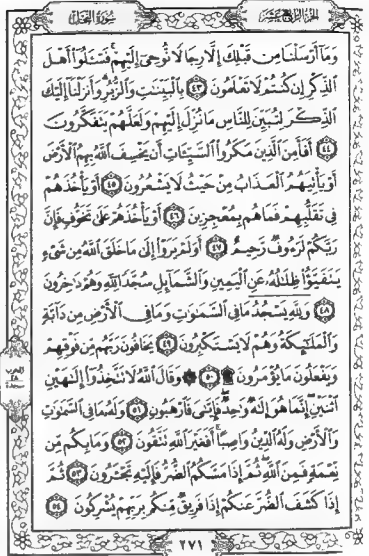 الجزء الرابع عشر
سورة النحل
وَمَآ أَرْسَلْنَا مِن قَبْلِكَ إِلَّا رِجَالًا نُّوحِىٓ إِلَيْهِمْ ۚ فَسْـَٔلُوٓا۟ أَهْلَ
ٱلذِّكْرِ إِن كُنتُمْ لَا تَعْلَمُونَ ٤٣ بِٱلْبَيِّنَـٰتِ وَٱلزُّبُرِ ۗ وَأَنزَلْنَآ إِلَيْكَ
ٱلذِّكْرَ لِتُبَيِّنَ لِلنَّاسِ مَا نُزِّلَ إِلَيْهِمْ وَلَعَلَّهُمْ يَتَفَكَّرُونَ
٤٤ أَفَأَمِنَ ٱلَّذِينَ مَكَرُوا۟ ٱلسَّيِّـَٔاتِ أَن يَخْسِفَ ٱللَّهُ بِهِمُ ٱلْأَرْضَ
أَوْ يَأْتِيَهُمُ ٱلْعَذَابُ مِنْ حَيْثُ لَا يَشْعُرُونَ ٤٥ أَوْ يَأْخُذَهُمْ
فِى تَقَلُّبِهِمْ فَمَا هُم بِمُعْجِزِينَ ٤٦ أَوْ يَأْخُذَهُمْ عَلَىٰ تَخَوُّفٍ فَإِنَّ
رَبَّكُمْ لَرَءُوفٌ رَّحِيمٌ ٤٧ أَوَلَمْ يَرَوْا۟ إِلَىٰ مَا خَلَقَ ٱللَّهُ مِن شَىْءٍ
يَتَفَيَّؤُا۟ ظِلَـٰلُهُۥ عَنِ ٱلْيَمِينِ وَٱلشَّمَآئِلِ سُجَّدًا لِّلَّهِ وَهُمْ دَٰخِرُونَ
٤٨ وَلِلَّهِ يَسْجُدُ مَا فِى ٱلسَّمَـٰوَٰتِ وَمَا فِى ٱلْأَرْضِ مِن دَآبَّةٍ
وَٱلْمَلَـٰٓئِكَةُ وَهُمْ لَا يَسْتَكْبِرُونَ ٤٩ يَخَافُونَ رَبَّهُم مِّن فَوْقِهِمْ
وَيَفْعَلُونَ مَا يُؤْمَرُونَ ۩ ٥٠ ۞ وَقَالَ ٱللَّهُ لَا تَتَّخِذُوٓا۟ إِلَـٰهَيْنِ
ٱثْنَيْنِ ۖ إِنَّمَا هُوَ إِلَـٰهٌ وَٰحِدٌ ۖ فَإِيَّـٰىَ فَٱرْهَبُونِ ٥١ وَلَهُۥ مَا فِى ٱلسَّمَـٰوَٰتِ
وَٱلْأَرْضِ وَلَهُ ٱلدِّينُ وَاصِبًا ۚ أَفَغَيْرَ ٱللَّهِ تَتَّقُونَ ٥٢ وَمَا بِكُم مِّن
نِّعْمَةٍ فَمِنَ ٱللَّهِ ۖ ثُمَّ إِذَا مَسَّكُمُ ٱلضُّرُّ فَإِلَيْهِ تَجْـَٔرُونَ ٥٣ ثُمَّ
إِذَا كَشَفَ ٱلضُّرَّ عَنكُمْ إِذَا فَرِيقٌ مِّنكُم بِرَبِّهِمْ يُشْرِكُونَ ٥٤
سجدة
٢٧١